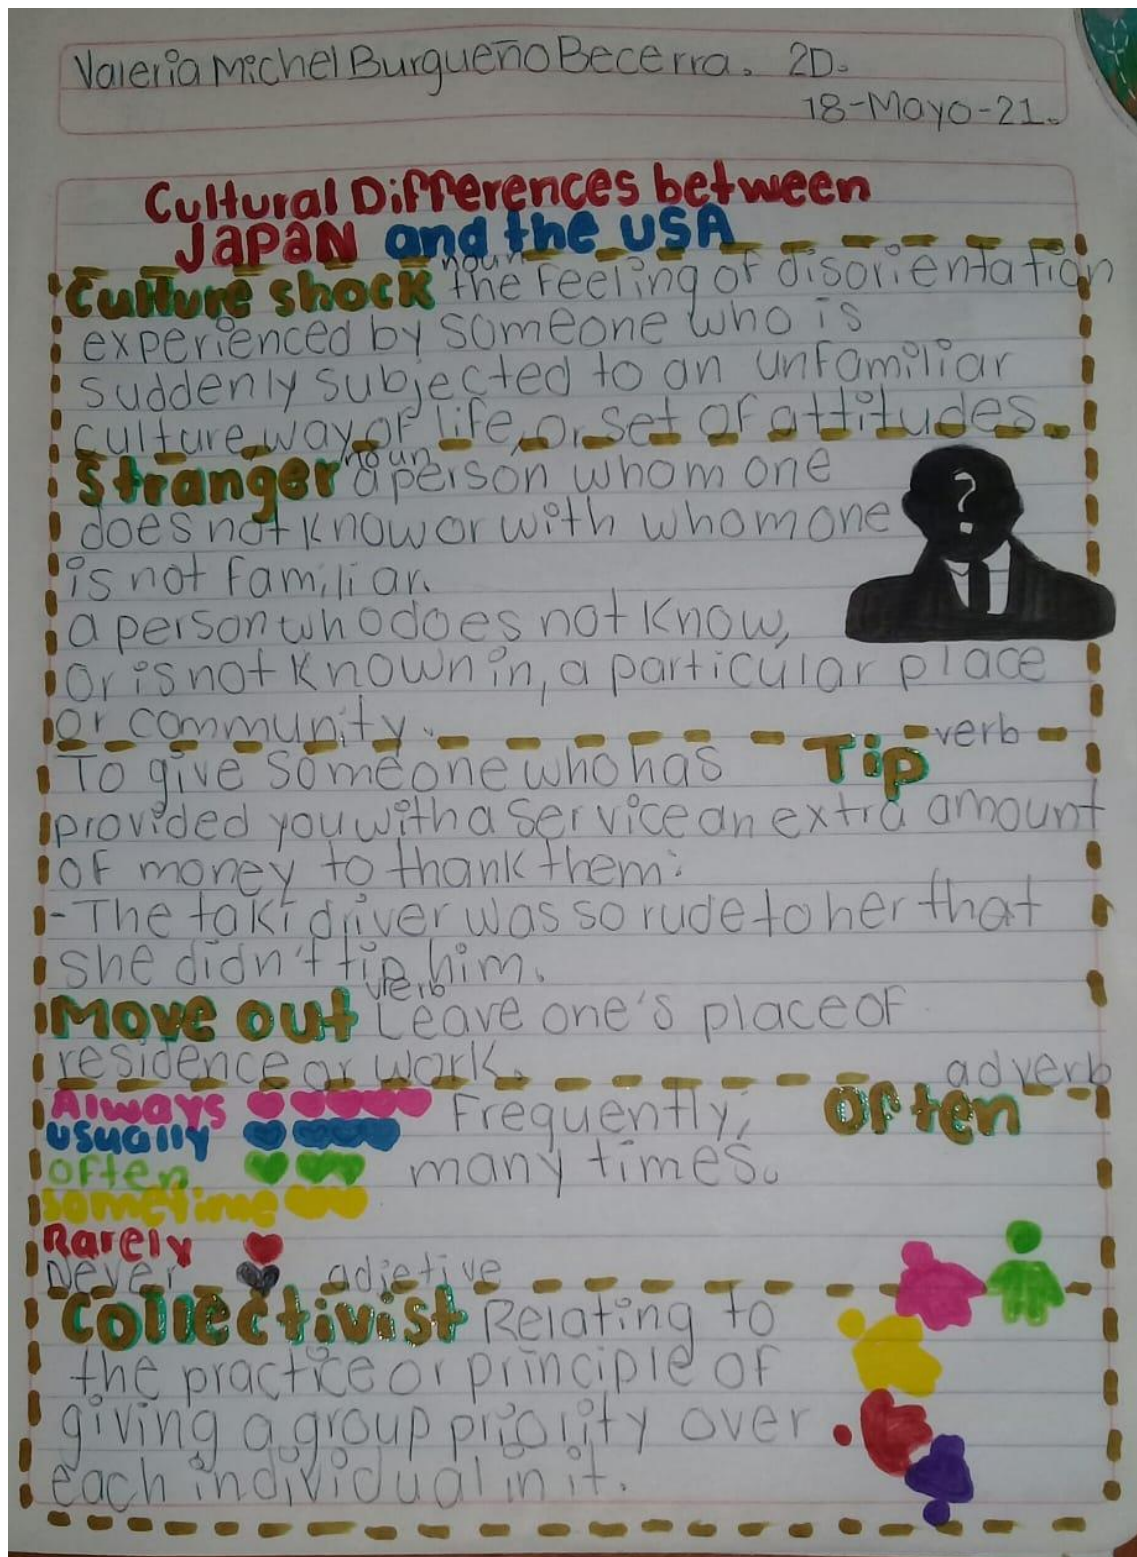 Valeria Michel Burgueño Becerra. 2D.
18-Mayo-21.
Cultural Differences between
JAPAN and the USA
Culture shock noun the feeling of disorientation
experienced by someone who is
suddenly subjected to an unfamiliar
culture, way of life, or set of attitudes.
Stranger noun a person whom one
does not know or with whom one
is not familiar.
a person who does not know,
or is not known in, a particular place
or community.
verb
To give someone who has Tip
provided you with a service an extra amount
of money to thank them:
-The taki driver was so rude to her that
she didn't tip him.
Move out verb Leave one's place of
residence or work.
adverb
Always Frequently, Often
usually
often many times.
sometime
Rarely
never adjetive
Collectivist Relating to
the practice or principle of
giving a group priority over
each individual in it.
?